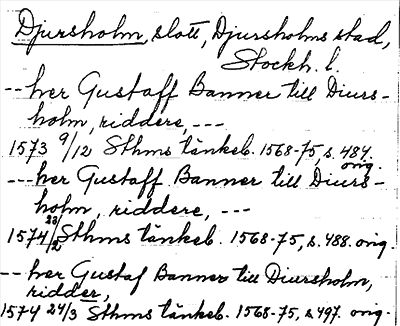 Djursholm, slott, Djursholms stad,
Stockh. l.
--- her Gustaff Banner till Diurs-
holm, riddere, ---
1573 9/12 Sthms tänkeb. 1568-75, s. 484.
orig.
--- her Gustaff Banner till Diurs-
holm, riddere, ---
1574 23/2 Sthms tänkeb. 1568-75, s. 488. orig.
--- her Gustaf Banner till Diursholm,
ridder,
1574 24/3 Sthms tänkeb. 1568-75, s. 497. orig.